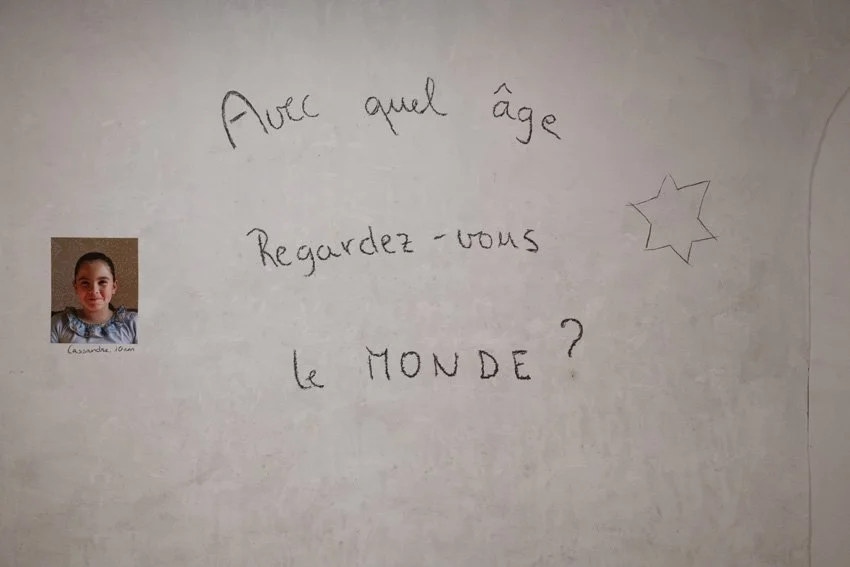 Avec quel âge
Regardez-vous
le MONDE ?
Cassandre, 10 ans